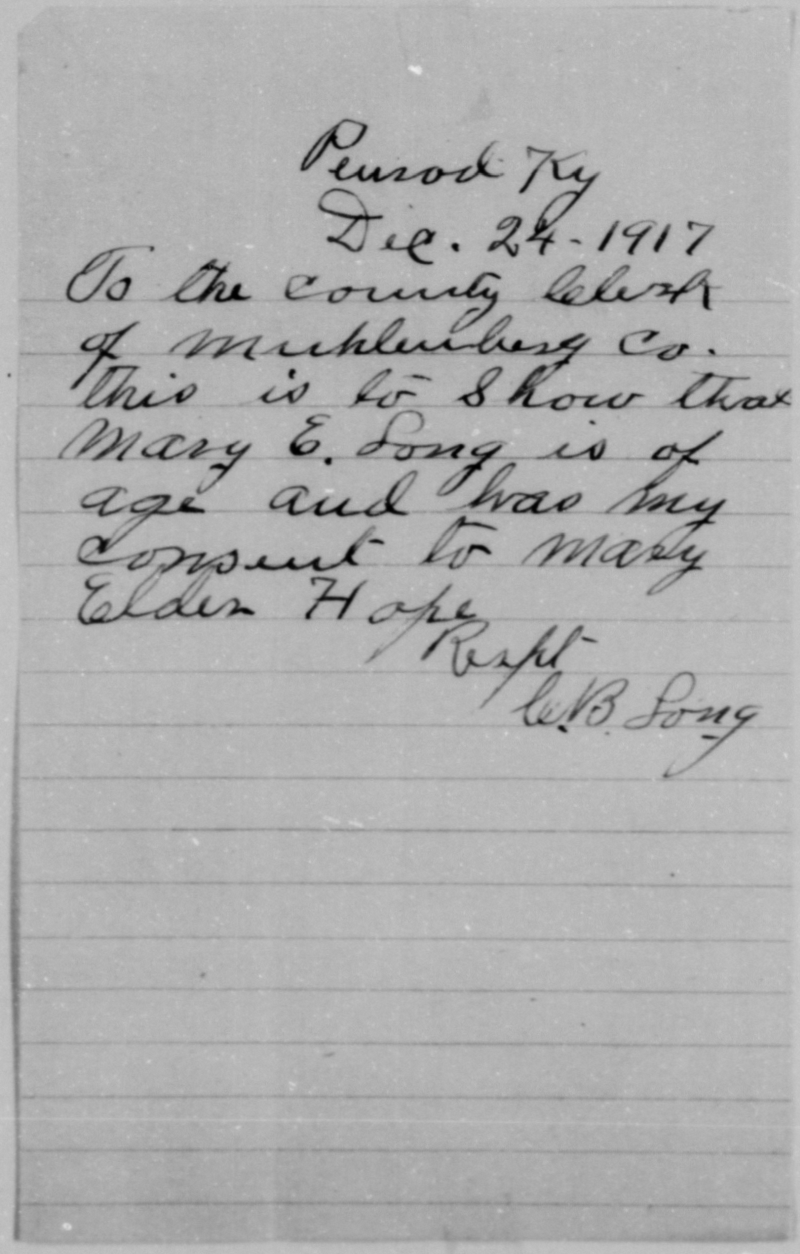 Penrod Ky
Dec. 24-1917
To the county Clerk
of Muhlenberg Co.
this is to Show that
Mary E. Long is of
age and has my
consent to Mary
Elden Hope
Respt
C.B. Long